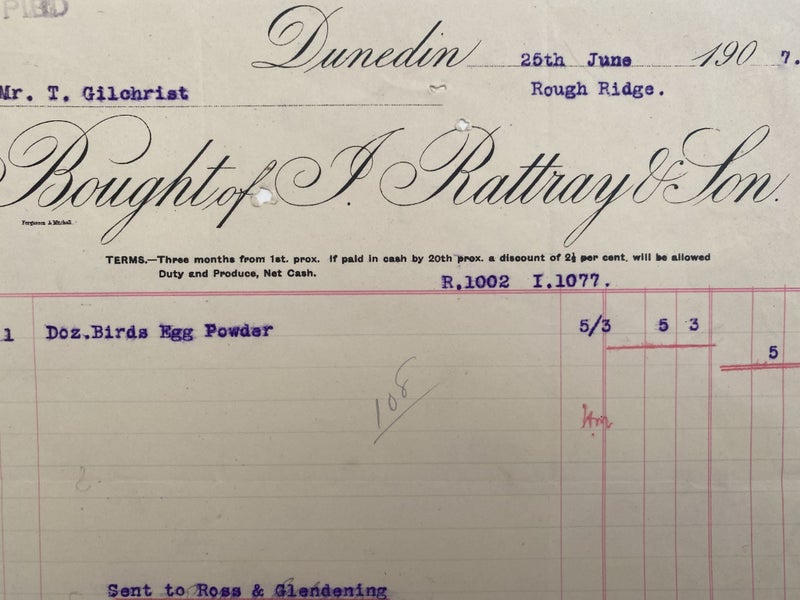 Dunedin 25th June 1907.
Mr. T. Gilchrist Rough Ridge.
Bought of J. Rattray & Son.
Ferguson & Mitchell.
TERMS.—Three months from 1st. prox. If paid in cash by 20th prox. a discount of 2½ per cent. will be allowed
Duty and Produce, Net Cash.
R.1002 I.1077.
1 Doz.Birds Egg Powder 5/3 5 3
5
108
Sent to Ross & Glendening